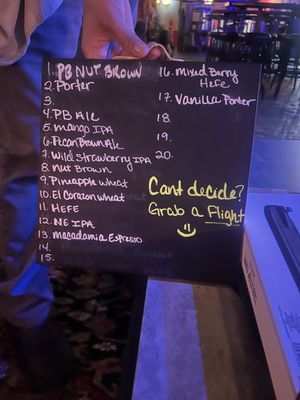 1. PB NUT BROWN
2. Porter
3.
4. PB Ale
5. mango IPA
6. Pecan Brown Ale
7. Wild Strawberry IPA
8. Nut Brown
9. Pineapple Wheat
10. El Corazon Wheat
11. HEFE
12. NE IPA
13. macadamia Espresso
14.
15.
16. Mixed Berry
Hefe
17. Vanilla Porter
18.
19.
20.
Cant decide?
Grab a Flight